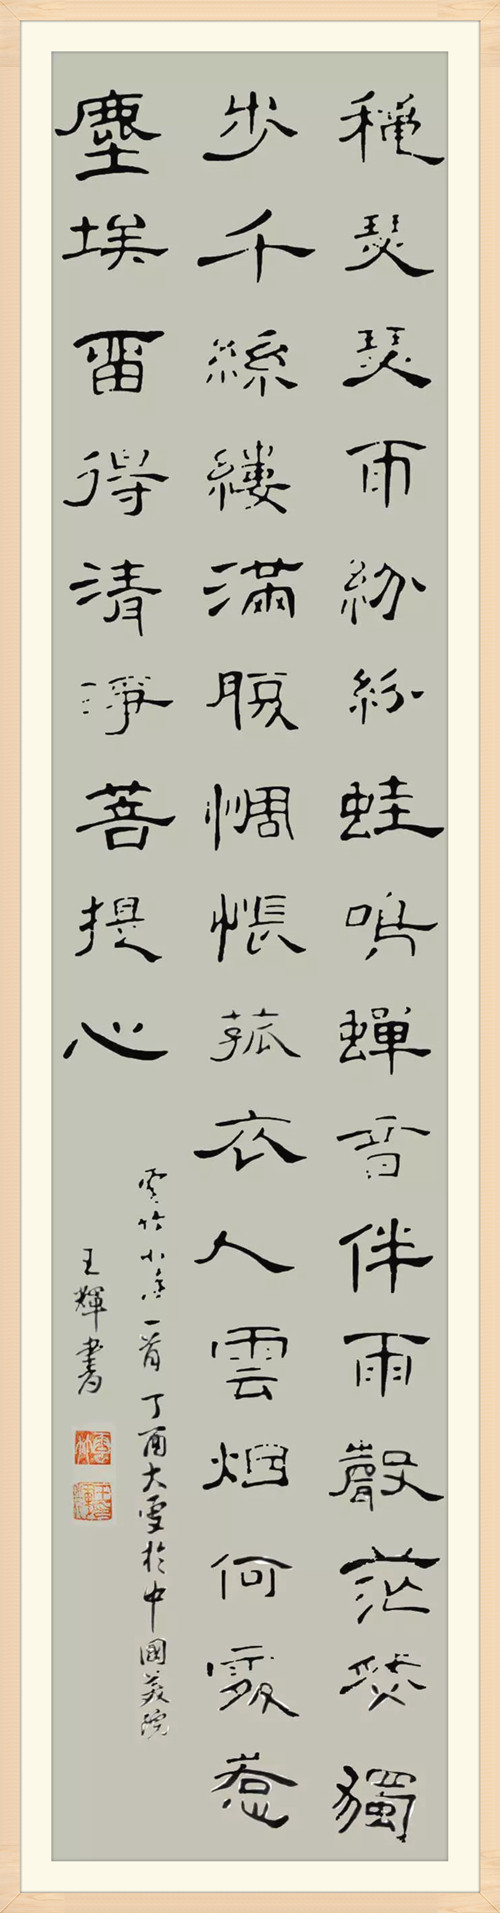 穐瑟瑟雨紛紛蛙鳴蟬音伴雨聲茫然獨
步千絲縷滿眼惆悵菰衣人雲烟何處惹
塵埃留得清淨菩提心
一首丁酉大雪於中國美院
王輝書